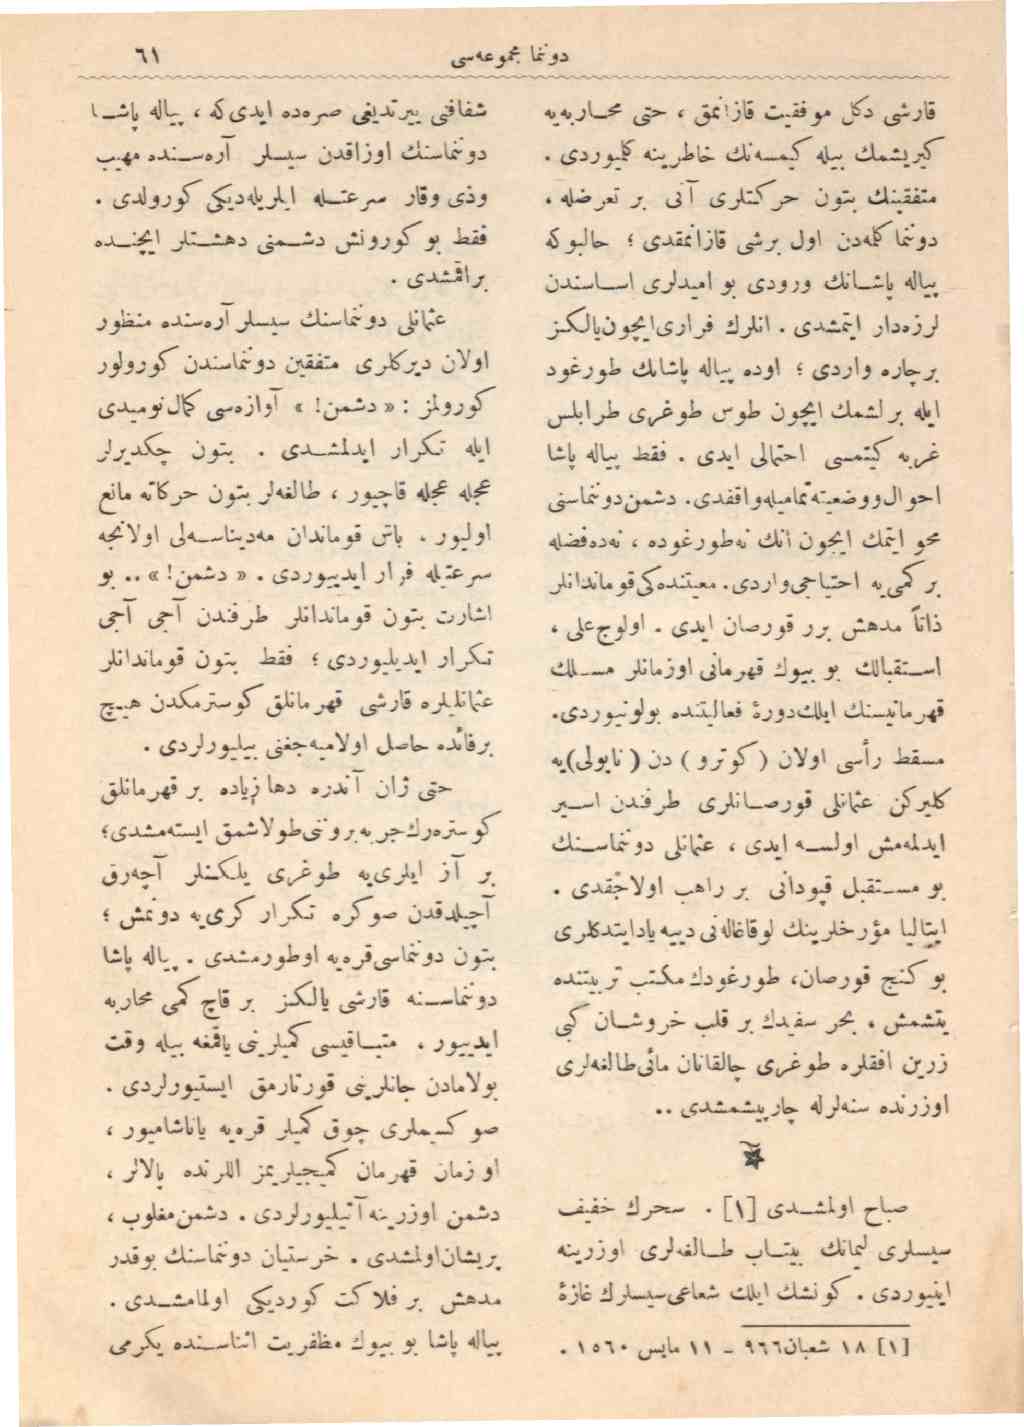 دوننما مجموعه‌سی
٦١
قارشی دکل موفقیت قازانمق ، حتی محـاربه‌یه
کیریشمك بیله کیمسه‌نك خاطرینه کلیوردی .
متفقینك بتون حرکتلری آنی بر تعرضله ،
دوننما کله‌دن اول برشی قازانمقدی ؛ حالبوکه
پیاله پاشـانك ورودی بو امیدلری اسـاسندن
لرزه‌دار ایتمشدی . انلرك فراری ایچون یالکز
برچاره واردی ؛ اوده پیاله پاشانك طورغود
ایله برلشمك ایچون طوس طوغری طرابلس
غربه کیتمسی احتمالی ایدی . فقط پیاله پاشا
احوال ووضعیته تمامیله واقفدی . دشمن دوننماسنی
محو ایتمك ایچون آنك نه طورغوده ، نه‌ده فضله
بر کمی‌یه احتیاجی واردی . معیتنده‌کی قوماندانلر
ذاتاً مدهش برر قورصان ایدی . اولوج علی ،
اسـتقبالك بو بیوك قهرمانی اوزمانلر مسـلك
قهرمانیسنك ایلك دورهٔ فعالیتنده بولونیوردی .
مسقط رأسی اولان ( کوترو ) دن ( ناپولی)یه
کلیرکن عثمانلی قورصـانلری طرفندن اسـیر
ایدلمه‌مش اولسـه ایدی ، عثمانلی دوننماسـنك
بو مسـتقبل قپودانی بر راهب اولاجقدی .
ایتالیا مؤرخلرینك لوقاغاله‌نی دییه یادایتدکلری
بو کنج قورصان، طورغودك مکتب تربیتنده
یتشمش ، بحر سفیدك بر قلب خروشـان کبی
زرین افقلره طوغری چالقانان مائی طالغه‌لری
اوزرنده سنه‌لرله چارپیشمشدی ..
صباح اولمشـدی [١] . سحرك خفیف
سیسلری لیمانك بیتـاب طـالغه‌لری اوزرینه
اینیوردی . کونشك ایلك شعاعی سیسلرك غازهٔ
[١] ١٨ شعبان ٩٦٦ ـ ١١ مایس ١٥٦٠ .
شفافنی ییرتدیغی صره‌ده ایدی که ، پیاله پاشـا
دوننماسنك اوزاقدن سیسلر آره‌سـنده مهیب
وذی وقار سرعتـله ایلریله‌دیکی کورولدی .
فقط بو کورونش دشـمنی دهشـتلر ایچنـده
براقمشدی .
عثمانلی دوننماسنك سیسلر آره‌سنده منظور
اولان دیرکلری متفقین دوننماسندن کورولور
کورولمز : « دشمن! » آوازه‌سی کمال نومیدی
ایله تکرار ایدلمشـدی . بتون چکدیریلر
عجله عجله قاچیور ، طالغه‌لر بتون حرکاته مانع
اولیور . باش قوماندان مه‌دیناسـه‌لی اولانجه
سرعتیله فرار ایدییوردی . « دشمن! » .. بو
اشارت بتون قوماندانلر طرفندن آجی آجی
تکرار ایدیلیوردی ؛ فقط بتون قوماندانلر
عثمانلیلره قارشی قهرمانلق کوسترمکدن هیـچ
برفائده حاصل اولامیه‌جغنی بیلیورلردی .
حتی ژان آندره دها زیاده بر قهرمانلق
کوستره‌رك جربه بروننی طولاشمق ایسته‌مشدی؛
بر آز ایلری‌یه طوغری یلکنلر آچه‌رق
آچیلدقدن صوکره تکرار کری‌یه دونمش ؛
بتون دوننماسی قره‌یه اوطورمشدی . پیاله پاشا
دوننماسـنه قارشی یالکز بر قاچ کمی محاربه
ایدییور . متبـاقیسی کمیلرینی یاقمغه بیله وقت
بولامادن جانلرینی قورتارمق ایستیورلردی .
صو کسیملری چوق کمیلر قره‌یه یاناشامیور ،
او زمان قهرمان کمیجیلریمز اللرنده پالالر ،
دشمن اوزرینه آتیلیورلردی . دشمن مغلوب ،
پریشان اولمشدی . خرستیان دوننماسنك بوقدر
مدهش بر فلاکت کوردیکی اولمامشـدی .
پیاله پاشا بو بیوك مظفریت اثناسـنده یکرمی